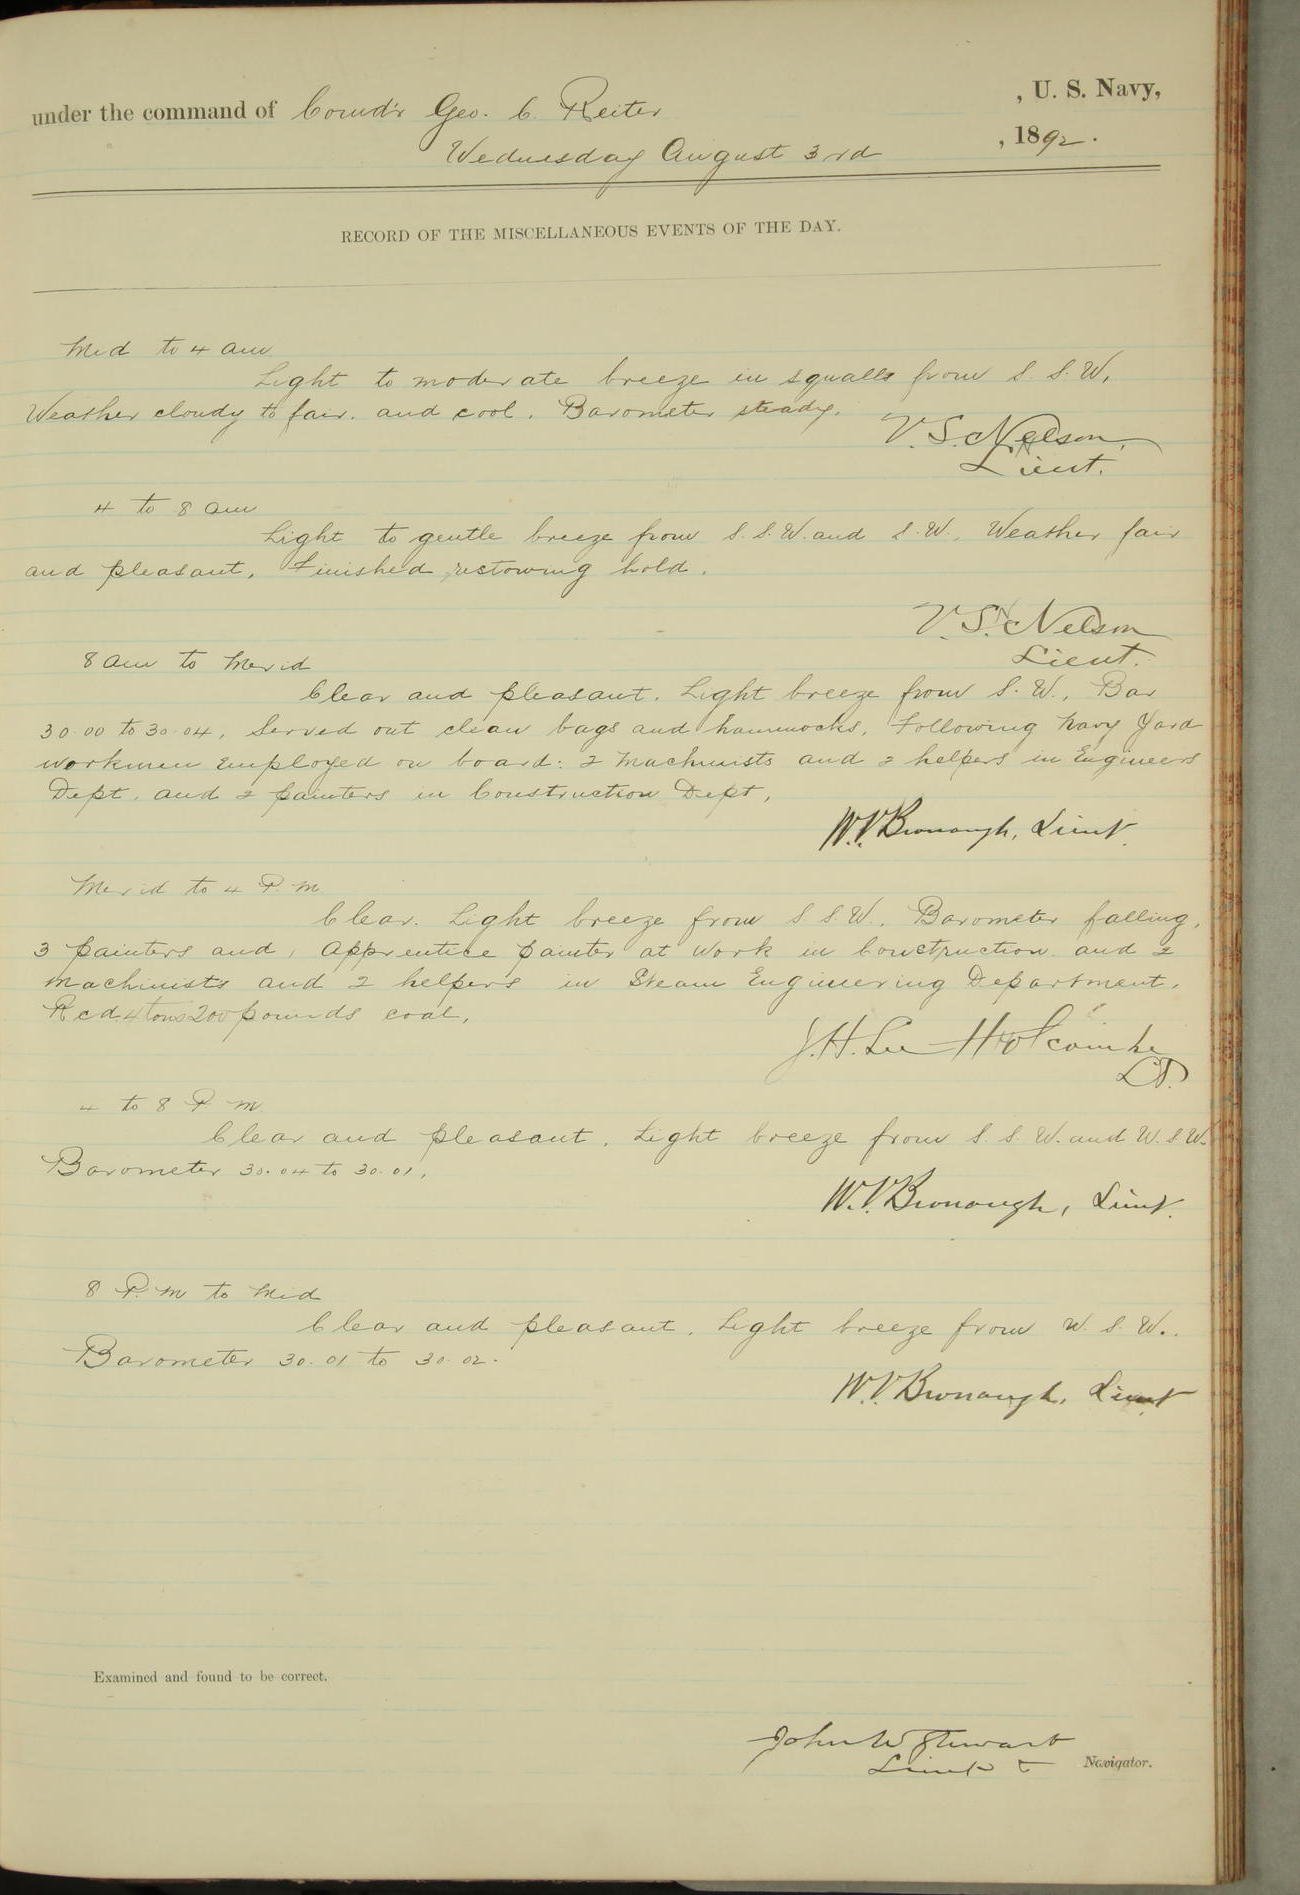 under the command of Comd'r Geo. C. Reiter , U. S. Navy,
Wednesday August 3rd , 1892.
RECORD OF THE MISCELLANEOUS EVENTS OF THE DAY.
Mid to 4 am
Light to moderate breeze in squalls from S. S. W.
Weather cloudy to fair. and cool. Barometer steady.
V. S. Nelson,
Lieut.
4 to 8 am
Light to gentle breeze from S. S. W. and S. W. Weather fair
and pleasant. Finished restowing hold.
V. S. Nelson
Lieut.
8 am to Merid
Clear and pleasant. Light breeze from S. W. Bar
30.00 to 30.04. Served out clean bags and hammocks. Following Navy Yard
workmen employed on board: 2 Machinists and 2 helpers in Engineers
Dept. and 2 painters in Construction Dept.
W. V. Bronaugh, Lieut.
Merid to 4 P. M
Clear. Light breeze from S S. W. Barometer falling.
3 painters and 1 apprentice painter at work in Construction and 2
machinists and 2 helpers in Steam Engineering Department.
Recd. 4 tons 200 pounds coal.
J. H. Lee Holcombe
Lt.
4 to 8 P. M
Clear and pleasant. Light breeze from S. S. W. and W. S. W.
Barometer 30.04 to 30.01.
W. V. Bronaugh, Lieut.
8 P. M to Mid
Clear and pleasant. Light breeze from W. S. W..
Barometer 30.01 to 30.02.
W. V. Bronaugh, Lieut
Examined and found to be correct.
John W Stewart
Lieut & Navigator.